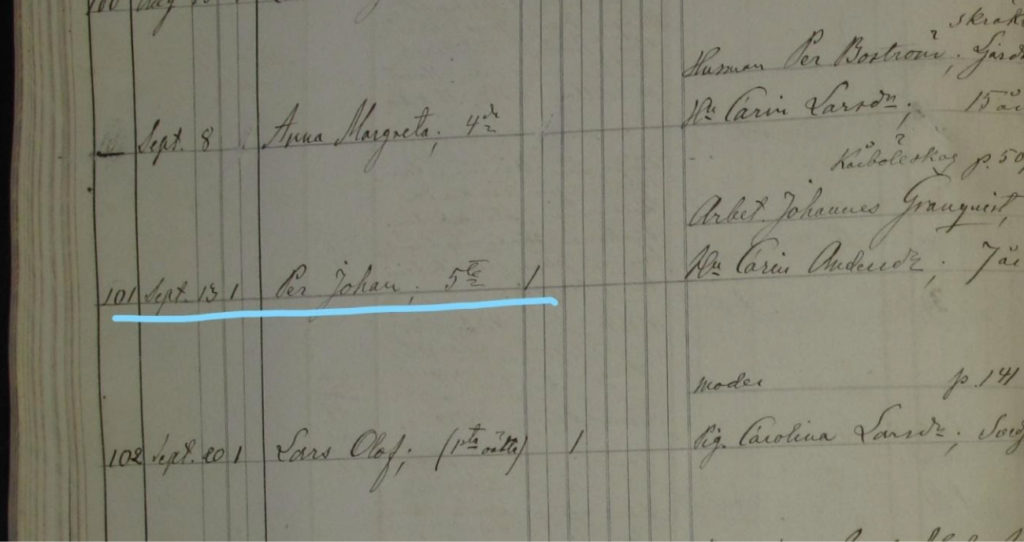 Husman Per Boström, Gärd
Sept. 8 Anna Margreta, 4de Hu Carin Larsdr, 15 år
Kåböleskog p. 50
Arbet. Johannes Granquist,
101 Sept. 13 1 Per Johan, 5te 1 Hu Carin Andersdr, 7 år
moder p. 141
102 Sept. 20 1 Lars Olof; (1sta oäkta) 1 Pig. Carolina Larsdr;